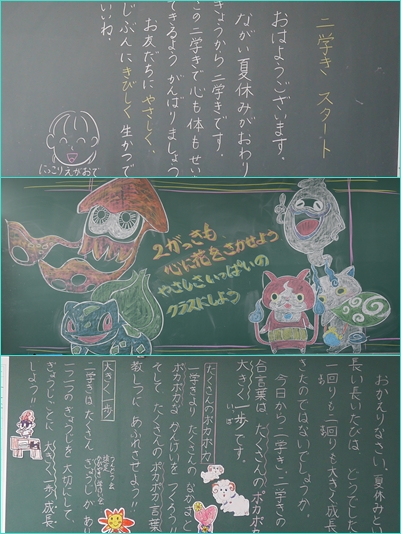 二学き スタート
おはようございます。
ながい夏休みがおわり
きょうから 二学きです。
この二学きで心も体もせい
できるよう がんばりましょう
お友だちに やさしく、
じぶんに きびしく 生かつで
いいね。
にっこりえがおで
2がっきも
心に花をさかせよう
やさしさいっぱいの
クラスにしよう
おかえりなさい。夏休みとい
長い長い
一回りも二回りも大きく成長
さたのではないでしょうか。
今日から二学き。二学きの
合言葉は、たくさんのポカポカ
大きく一歩です。
たくさんのポカポカ
一学きより
ポカポカな かんけいを つくろう!!
そして たくさんのポカポカ言葉
教しつに あふれさせよう!!
大きく一歩
二学きは たくさん ぎょうじが あり
一つ一つの ぎょうじを 大切にして、
ぎょうじごとに 大きく一歩 成長
しよう!!